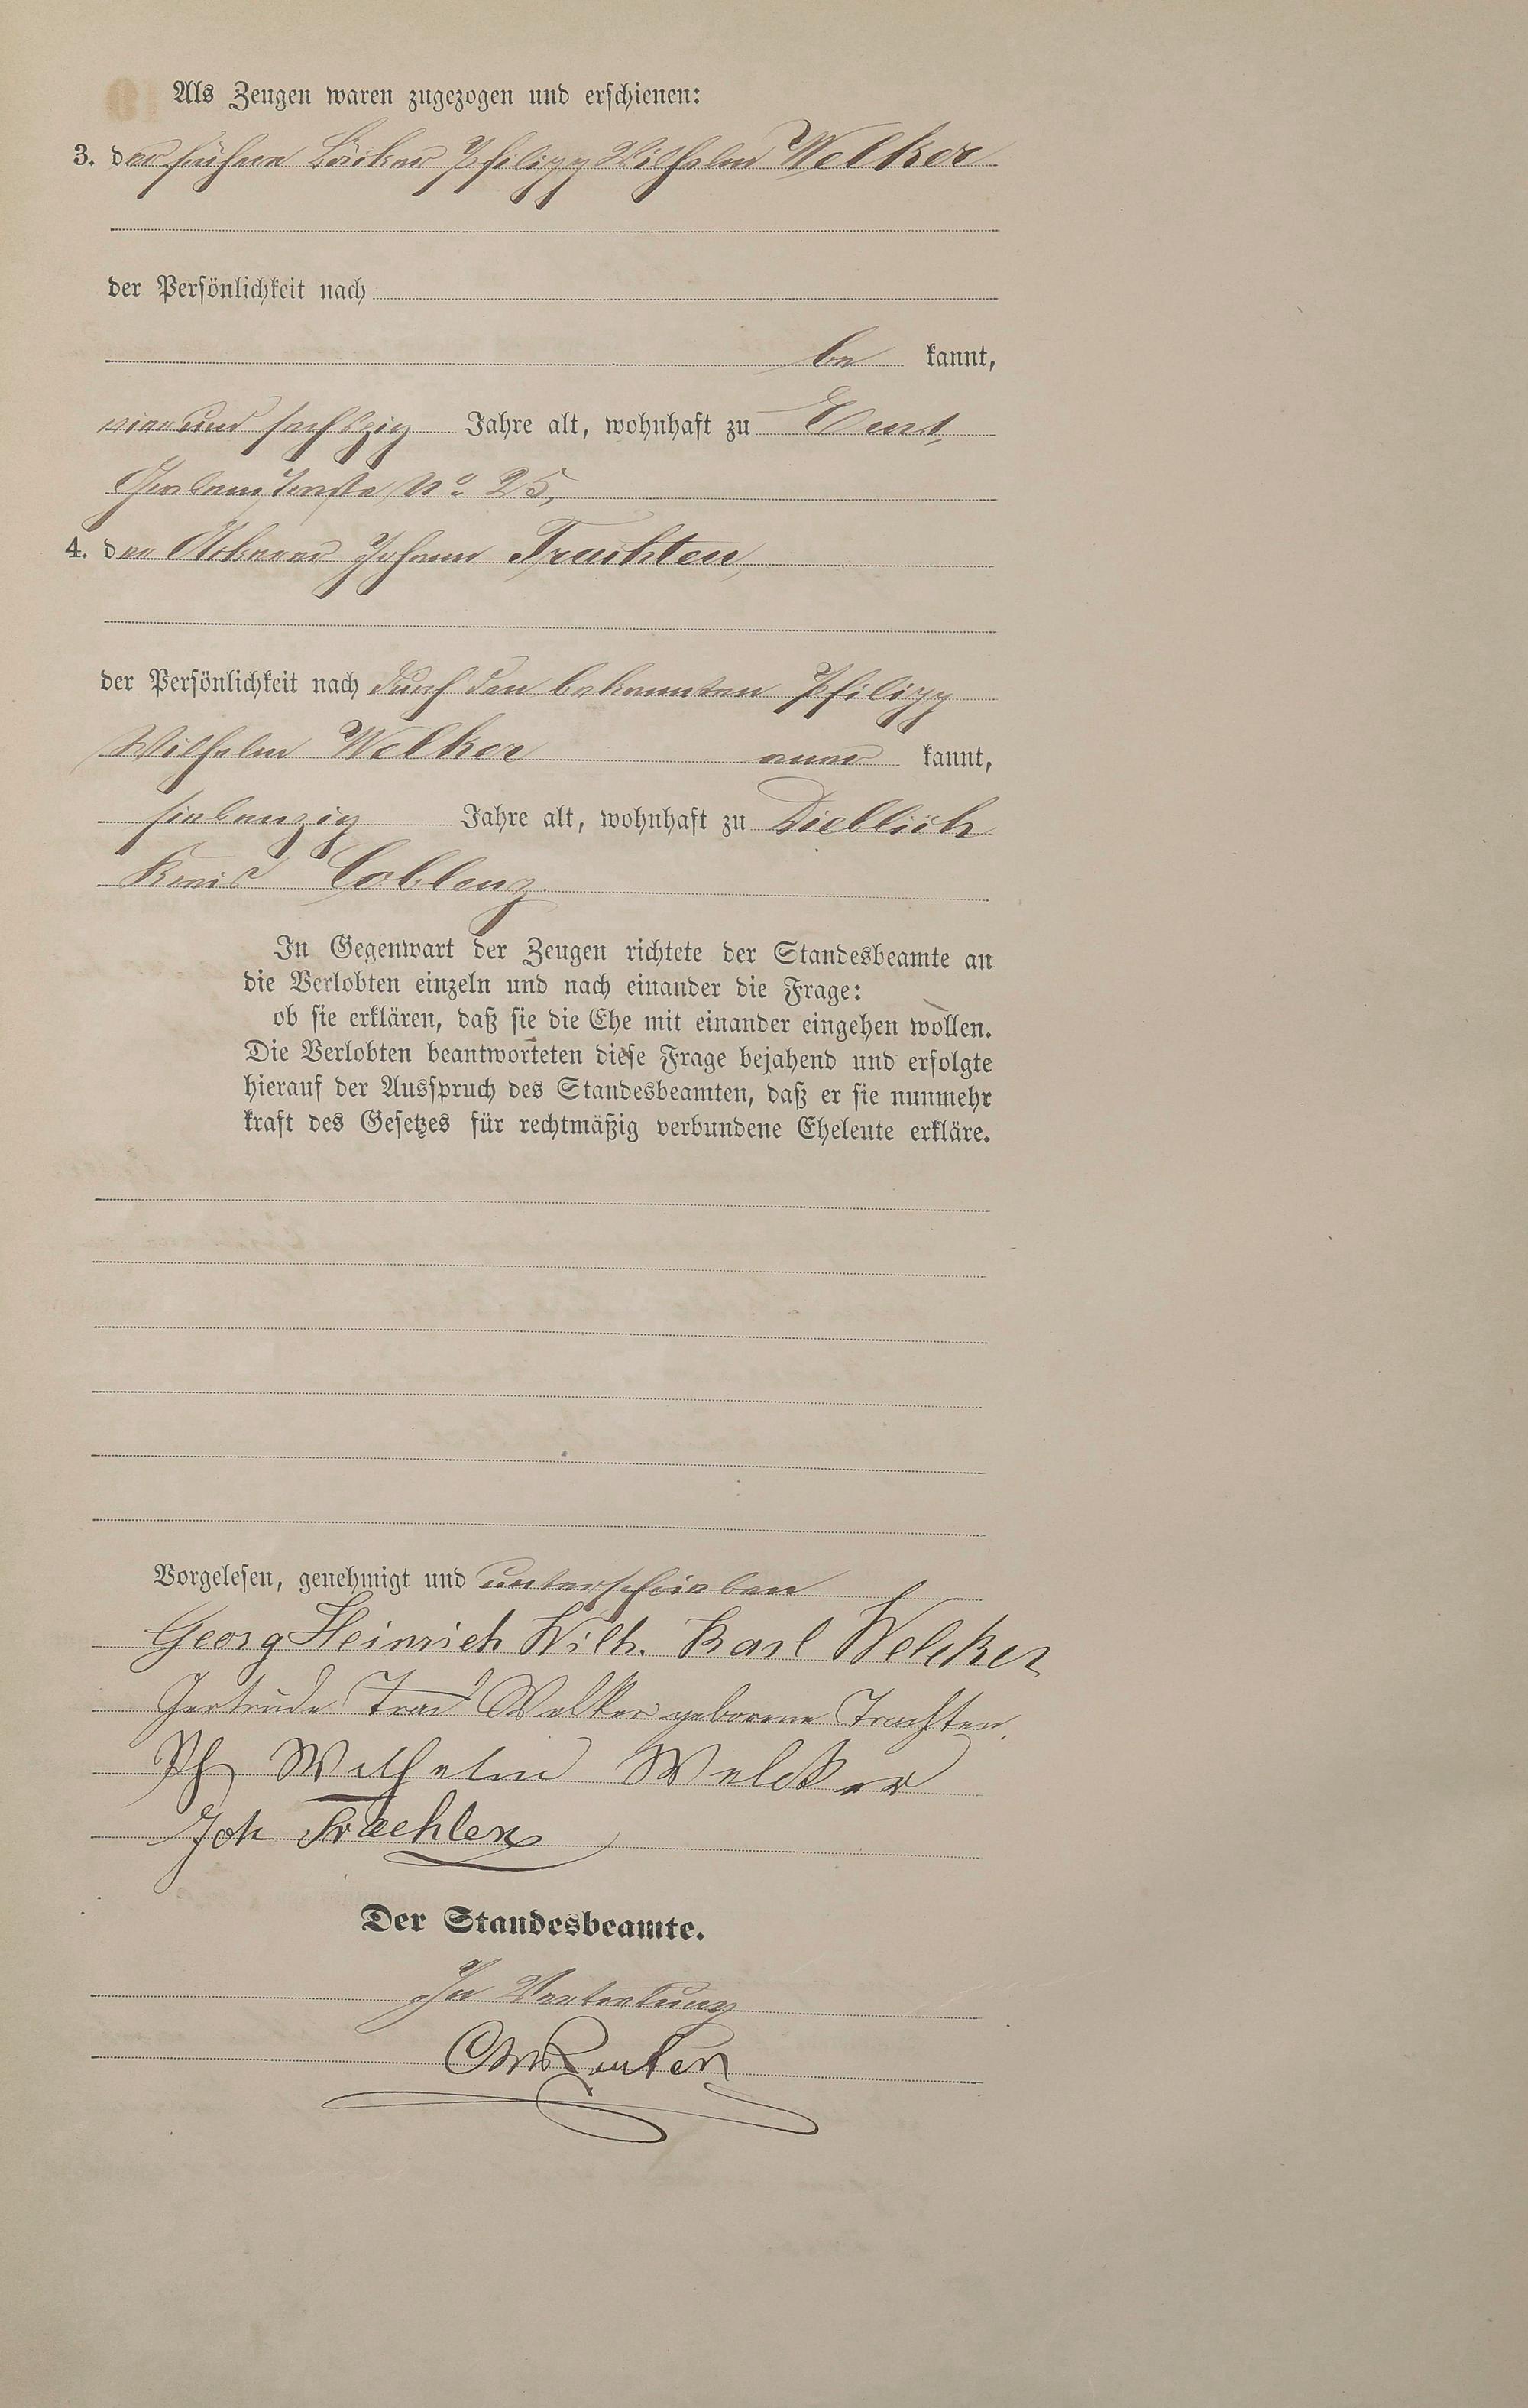 Als Zeugen waren zugezogen und erschienen:
3. der frühere Bäcker Philipp Wilhelm Welker
der Persönlichkeit nach
be kannt,
vier und sechszig Jahre alt, wohnhaft zu
No 25,
4. der Ackerer Johann Trachten,
der Persönlichkeit nach durch den bekannten Philipp
Wilhelm Welker aner kannt,
siebenzig Jahre alt, wohnhaft zu Dieblich
Kreis Coblenz.
In Gegenwart der Zeugen richtete der Standesbeamte an
die Verlobten einzeln und nach einander die Frage:
ob sie erklären, daß sie die Ehe mit einander eingehen wollen.
Die Verlobten beantworteten diese Frage bejahend und erfolgte
hierauf der Ausspruch des Standesbeamten, daß er sie nunmehr
kraft des Gesetzes für rechtmäßig verbundene Eheleute erkläre.
Vorgelesen, genehmigt und unterschrieben
Georg Heinrich Wilh. Karl Welcker
Gertrude Welker geborene Trachten.
Ph Wilhelm Welcker
Joh Trachten
Der Standesbeamte.
In Vertretung